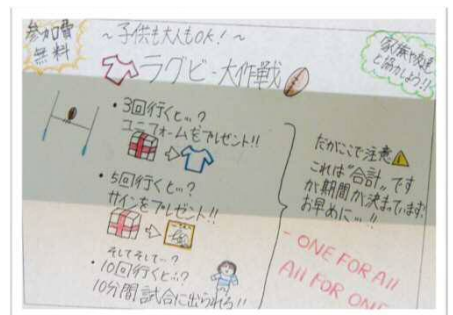 参加費
無料
~子供も大人もOK!~
ラグビー大作戦
家族や友達
と協力しよう!!
・3回行くと…?
ユニフォームをプレゼント!!
・5回行くと…?
サインをプレゼント!!
そしてそして…?
・10回行くと…?
10分間試合に出られる!!
だがここで注意
これは"合計"です
が期間が決まっています。
お早めに…!!
- ONE FOR All
All FOR ONE